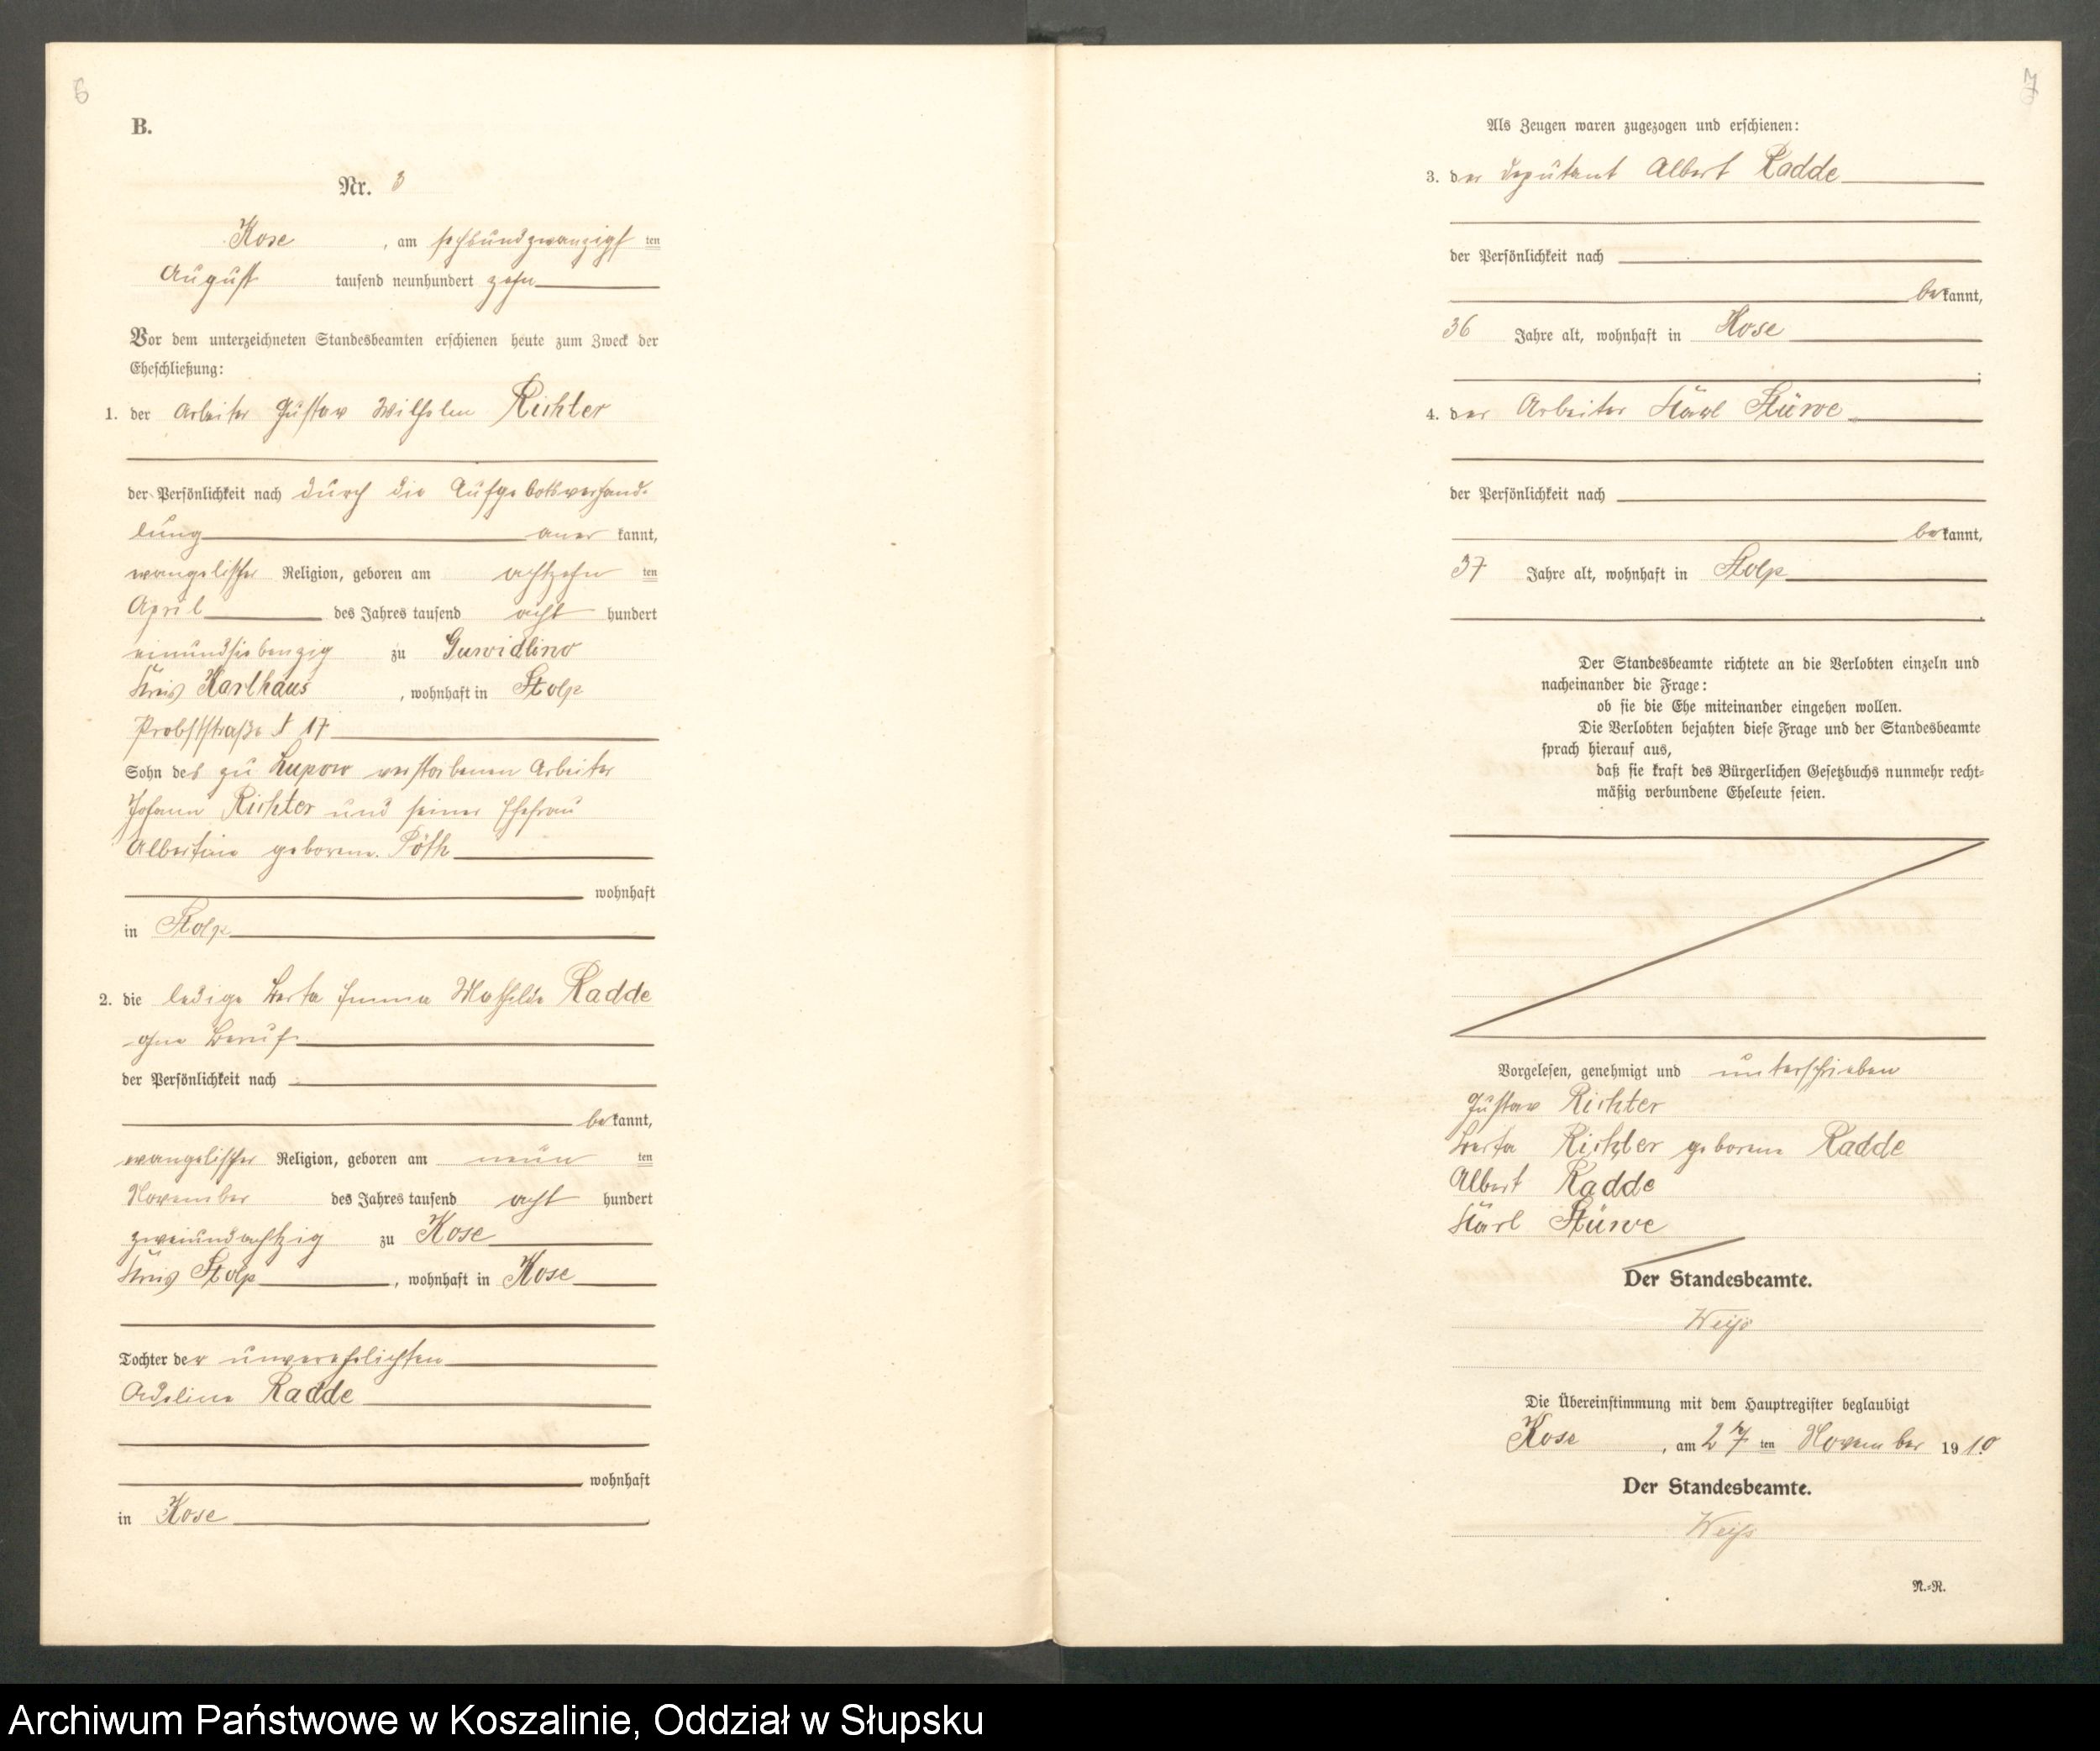 6
B.
Nr. 3
Kose, am sechsundzwanzigsten
August tausend neunhundert zehn
Vor dem unterzeichneten Standesbeamten erschienen heute zum Zweck der
Eheschließung:
1. der Arbeiter Gustav Wilhelm Richter
der Persönlichkeit nach durch die Aufgebotsverhand-
lung anerkannt,
evangelischer Religion, geboren am achtzehnten
April des Jahres tausend acht hundert
einundsiebenzig zu
Kreis Karthaus, wohnhaft in Stolp
Probststraße N 17
Sohn des zu Lupow verstorbenen Arbeiter
Johann Richter und seiner Ehefrau
Albertine geborene
wohnhaft
in Stolp
2. die ledige Berta Emma Mathilde Radde
ohne Beruf
der Persönlichkeit nach
bekannt,
evangelischer Religion, geboren am neunten
November des Jahres tausend acht hundert
zweiundachtzig zu Kose
Kreis Stolp, wohnhaft in Kose
Tochter der unverehelichten
Adeline Radde
wohnhaft
in Kose
7
Als Zeugen waren zugezogen und erschienen:
3. der Deputant Albert Radde
der Persönlichkeit nach
bekannt,
36 Jahre alt, wohnhaft in Kose
;
4. der Arbeiter Karl Stüwe
der Persönlichkeit nach
bekannt,
37 Jahre alt, wohnhaft in Stolp
Der Standesbeamte richtete an die Verlobten einzeln und
nacheinander die Frage:
ob sie die Ehe miteinander eingehen wollen.
Die Verlobten bejahten diese Frage und der Standesbeamte
sprach hierauf aus,
daß sie kraft des Bürgerlichen Gesetzbuchs nunmehr recht-
mäßig verbundene Eheleute seien.
Vorgelesen, genehmigt und unterschrieben
Gustav Richter
Berta Richter geborene Radde
Albert Radde
Karl Stüwe
Der Standesbeamte.
Weiß
Die Übereinstimmung mit dem Hauptregister beglaubigt
Kose, am 27 ten November 1910
Der Standesbeamte.
Weiß
N.-R.
Archiwum Państwowe w Koszalinie, Oddział w Słupsku